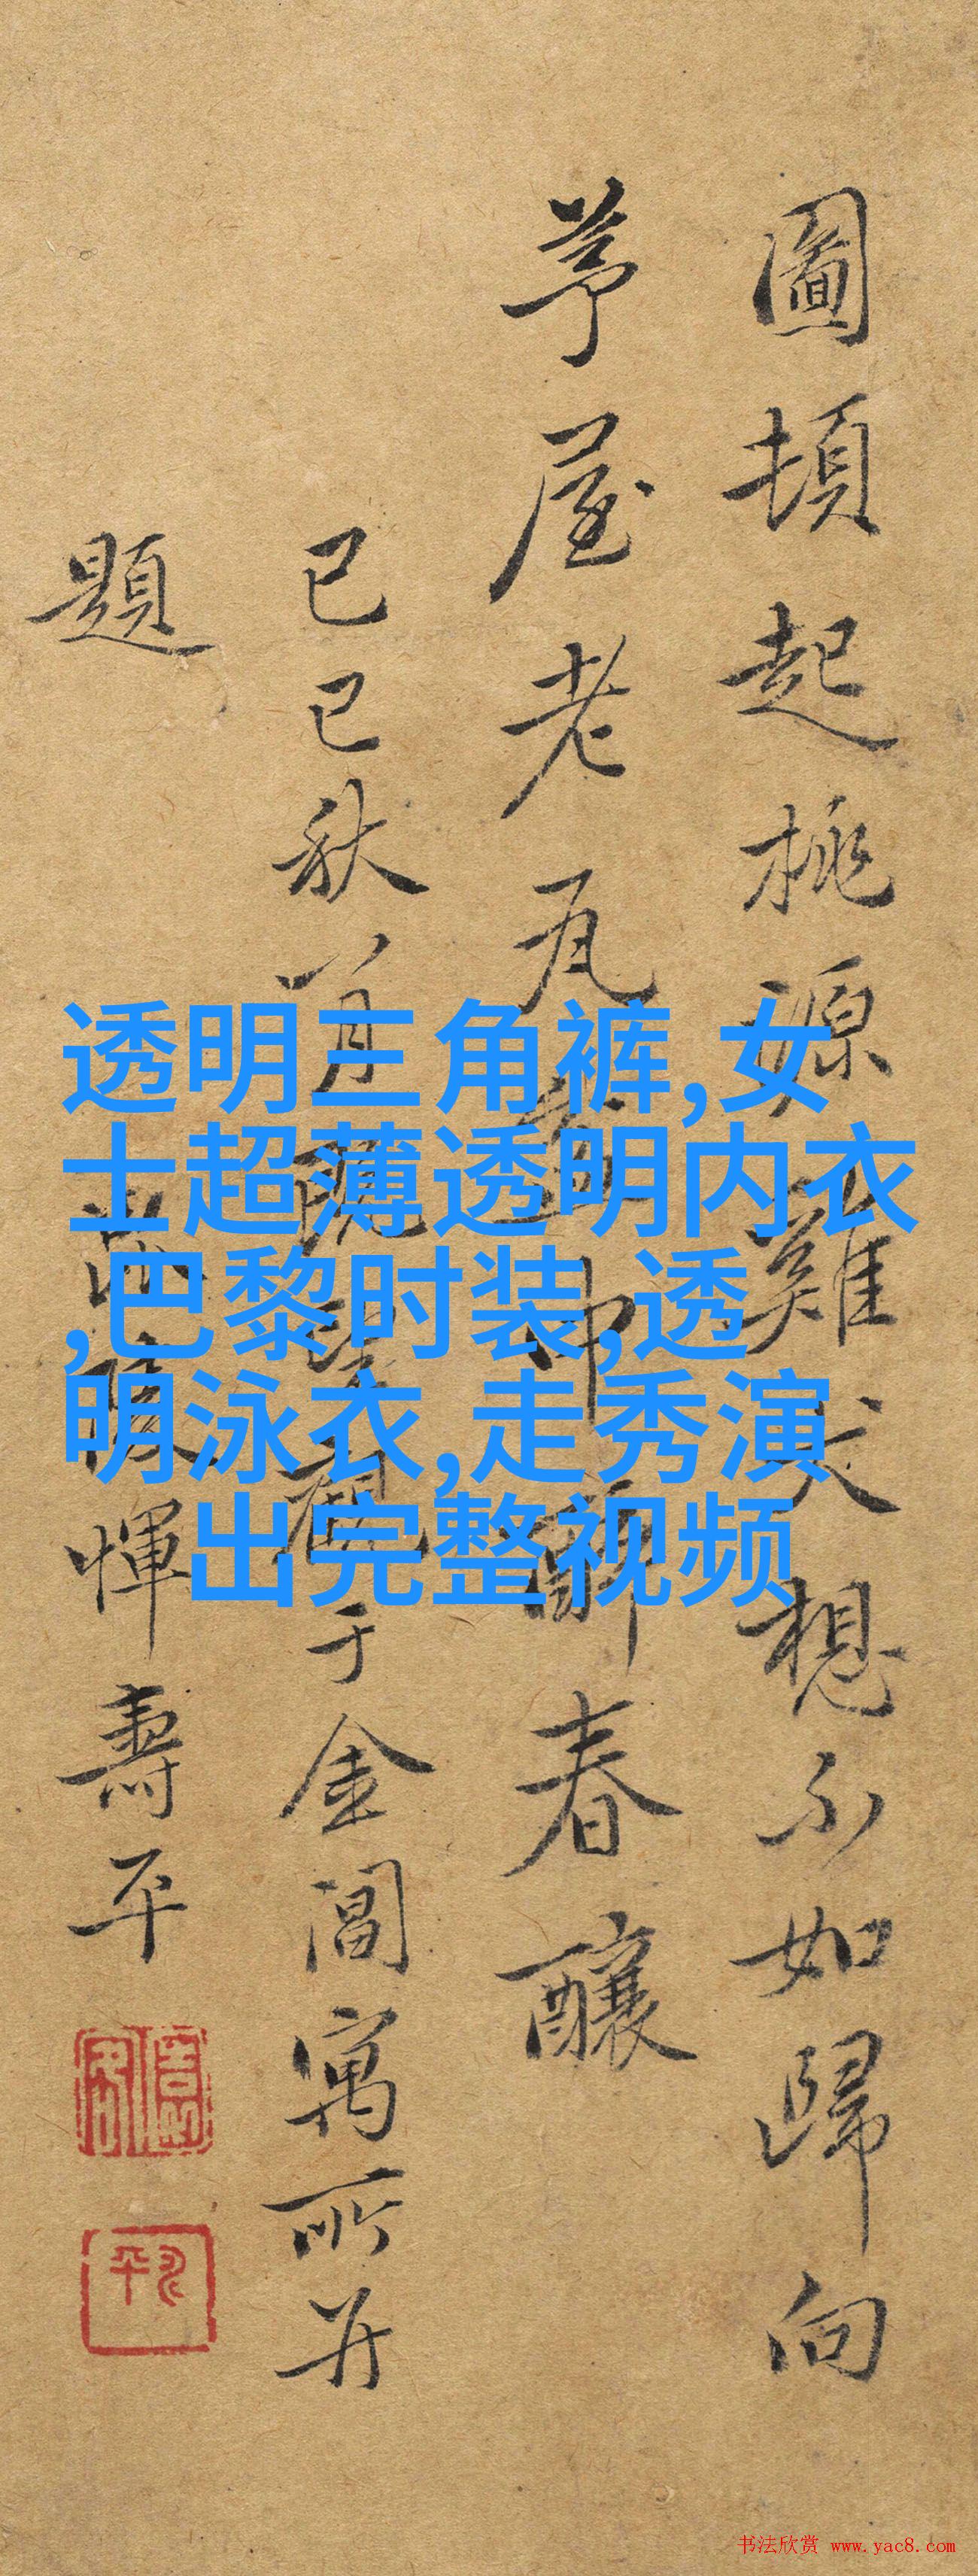 圖頓起桃源雞犬想不如歸向
茅屋老瓦盆中酹春釀
己巳秋八月觀于金閶寓所并
題
惲壽平
透明三角裤,女
士超薄透明内衣
,巴黎时装,透
明泳衣,走秀演
出完整视频
书法欣赏 www.yac8.com